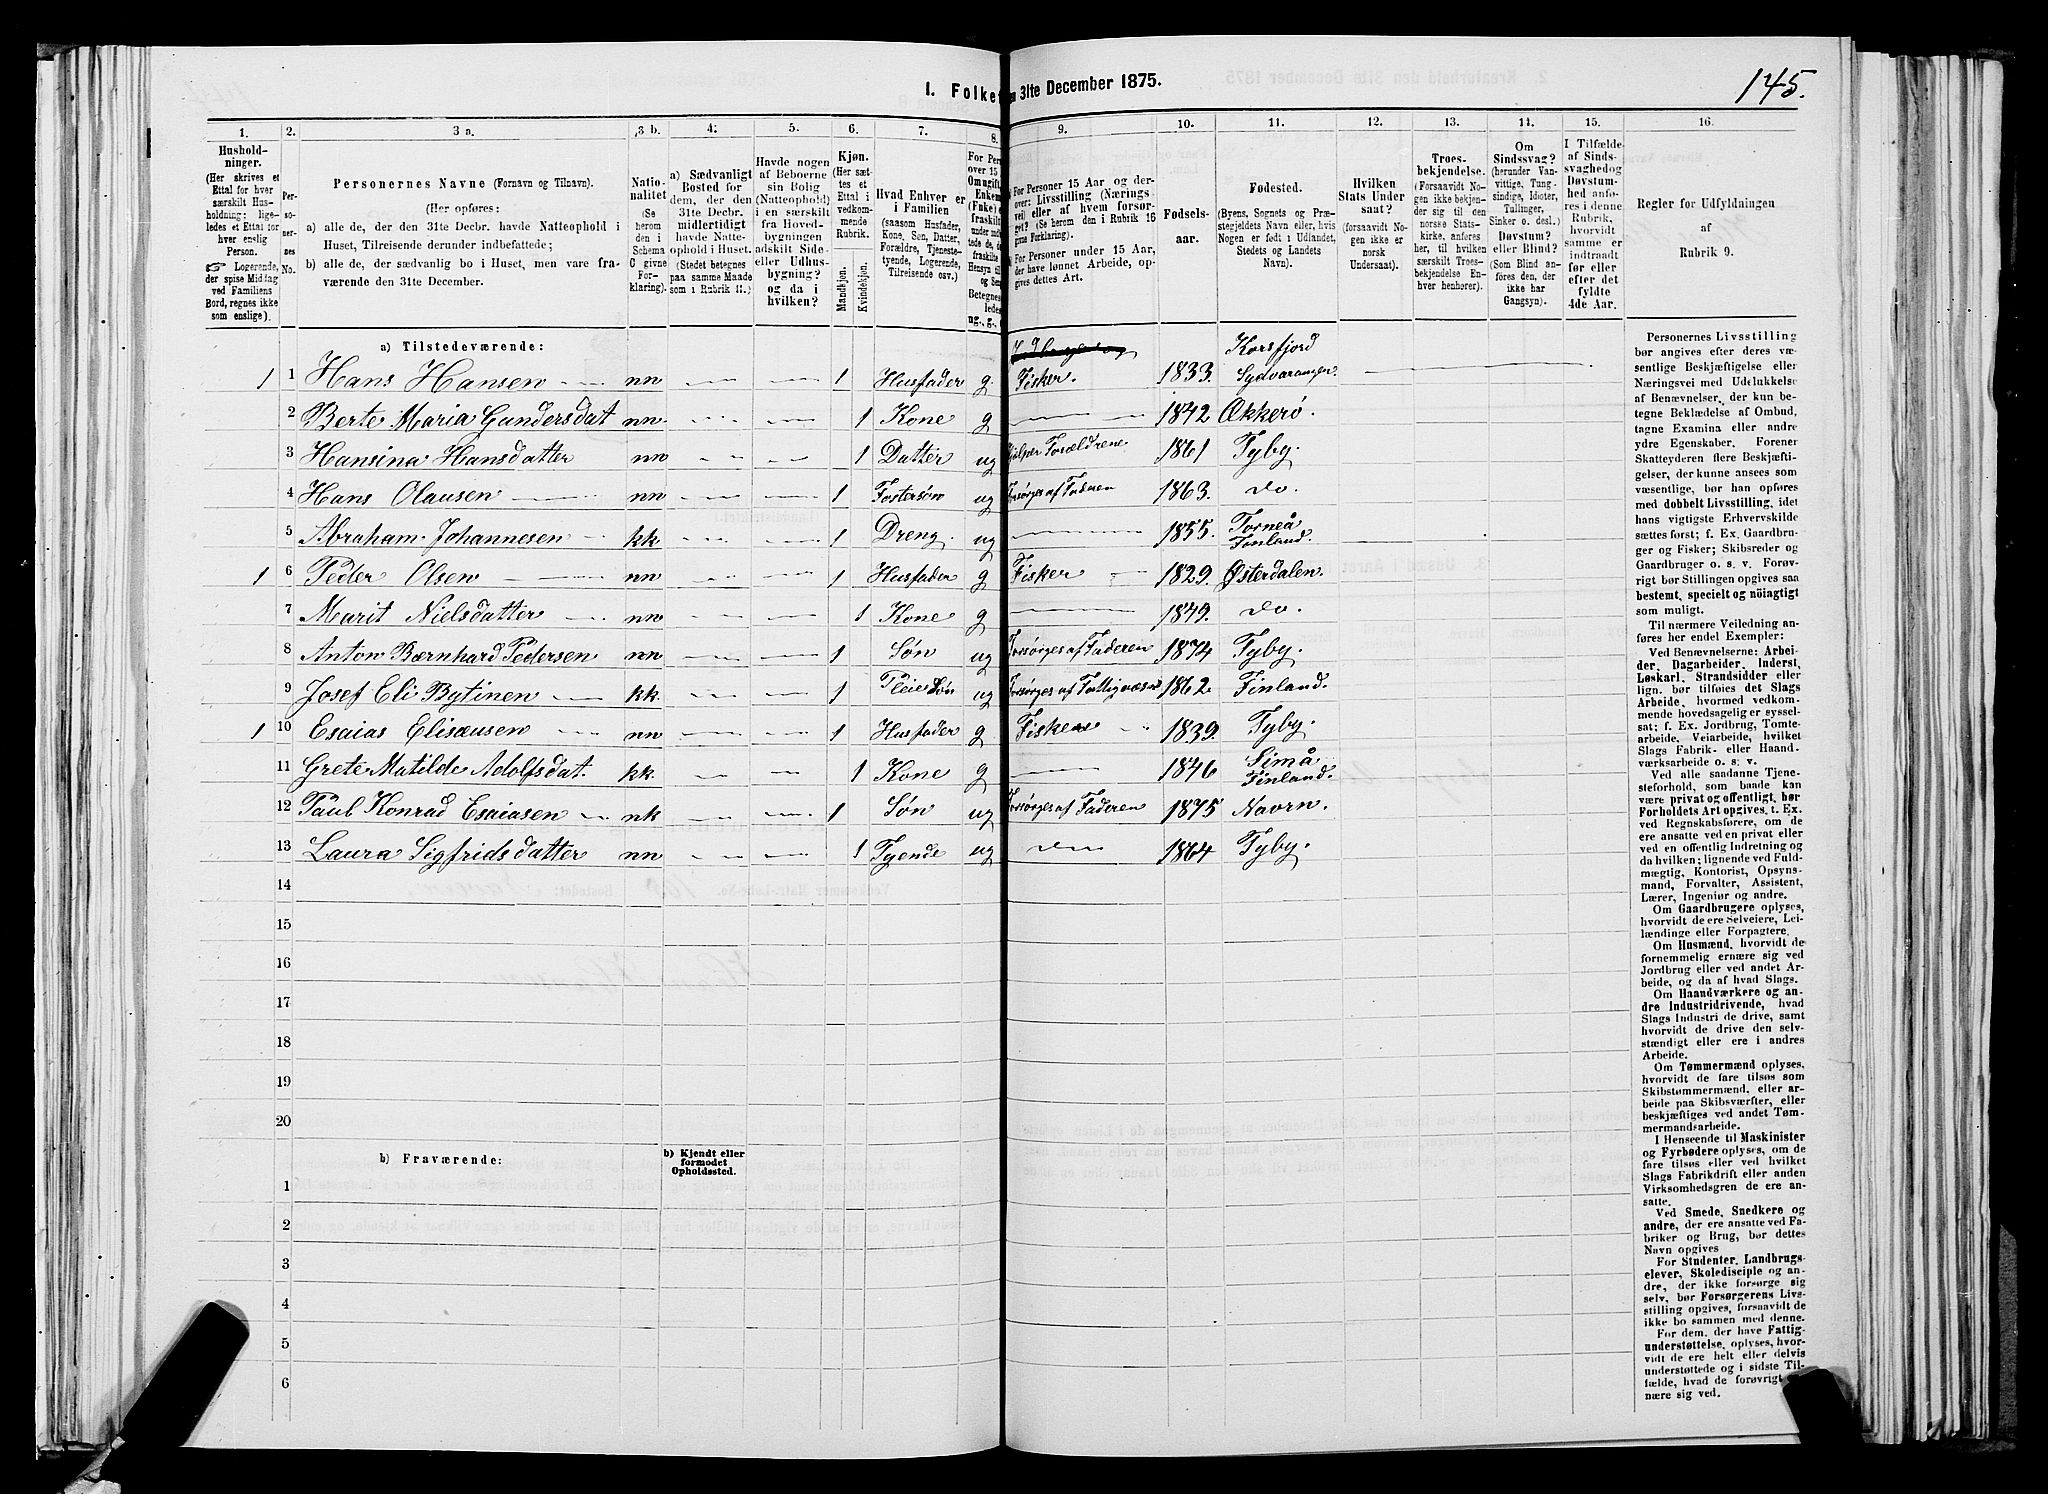 145.
I. Folket
31te December 1875.
1. 2. 3 a. 3 b. 4. 5. 6. 7. 8. 9. 10. 11. 12. 13. 14. 15. 16.
Husholdninger. (Her skrives et Ettal for hver særskilt Husholdning; ligeledes et Ettal for hver enslig Person. ☞ Logerende, der spise Middag ved Familiens Bord, regnes ikke som enslige).
Personernes No.
Personernes Navne (Fornavn og Tilnavn).
(Her opføres:
a) alle de, der den 31te Decbr. havde Natteophold i Huset, Tilreisende derunder indbefattede;
b) alle de, der sædvanlig bo i Huset, men vare fraværende den 31te December.
Nationalitet (Se herom den i Schema C givne Forklaring).
a) Sædvanligt Bosted for dem, der den 31te Decbr. midlertidigt havde Natteophold i Huset. (Stedet betegnes paa samme Maade som i Rubrik 11.)
Havde nogen af Beboerne sin Bolig (Natteophold) i en særskilt fra Hovedbygningen adskilt Side- eller Udhusbygning? og da i hvilken?
Kjøn. (Her sættes et Ettal i vedkommende Rubrik. Mandkjøn. Kvindekjøn.
Hvad Enhver er i Familien (saasom Husfader, Kone, Søn, Datter, Forældre, Tjenestetyende, Logerende, Tilreisende osv.)
For Personer 15 Aar og derover: Livsstilling (Næringsvei) eller af hvem forsørget? (Se herom i Rubrik 16 givne Forklaring).
For Personer under 15 Aar, der have lønnet Arbeide, opgives dettes Art.
Fødselsaar.
Fødested. (Byens, Sognets og Præstegjeldets Navn eller, hvis Nogen er født i Udlandet, Stedets og Landets Navn).
Hvilken Stats Undersaat? (forsaavidt Nogen ikke er norsk Undersaat).
Troesbekjendelse. (Forsaavidt Nogen ikke bekjender sig til den norske Statskirke, anføres her, til hvilken særskilt Troesbekjendelse Enhver henhører).
Om Sindssvag? (herunder Vanvittige, Tungsindige, Idioter, Tullinger, Sinker o. desl.). Døvstum? eller Blind? (Som Blind anføres den, der ikke har Gangsyn).
I Tilfælde af Sindssvaghed og Døvstumhed anføres i denne Rubrik, hvorvidt samme er indtraadt før eller efter det fyldte 4de Aar.
Regler for Udfyldningen af Rubrik 9.
a) Tilstedeværende:
1 1 Hans Hansen nn 1 Husfader g Fisker. 1833. Korsfjord Sydvaranger.
2 Berte Maria Gundersdat nn. 1 Kone g 1842 Ekkerö.
3 Hansina Hansdatter nn 1 Datter ug hjelper Forældrene. 1861 Tyby.
4 Hans Olausen nn 1 Fostersön ug Forsørges af Faderen 1863. do.
5 Abraham Johannesen kk 1 Dreng. ug 1855. Torneå Finland.
1 6 Peder Olsen nn 1 Husfader g Fisker 1829. Østerdalen.
7 Marit Nielsdatter nn 1 Kone g 1849. do.
8 Anton Bærnhard Pedersen nn 1 Søn ug Forsørges af Faderen 1874 Tyby.
9 Josef Eli Bytinen kk 1 Pleie Søn ug Forsørges af Fattigvæsen 1862. Finland.
1 10 Esaias Elisæusen nn 1 Husfader g Fisker 1839. Tyby.
11 Grete Matilde Adolfsdat. kk. 1 Kone g 1846 Simå Finland.
12 Paul Konrad Esaiasen nk 1 Søn ug Forsørges af Faderen 1875 Navrn.
13 Laura Sigfridsdatter nn 1 Tyende ug do 1864 Tyby.
14
15
16
17
18
19
20
b) Fraværende:
b) Kjendt eller formodet Opholdssted.
1
2
3
4
5
6
Personernes Livsstilling bør angives efter deres væsentlige Beskjæftigelse eller Næringsvei med Udelukkelse af Benævnelser, der kun betegne Beklædelse af Ombud, tagne Examina eller andre ydre Egenskaber. Forener Skatteyderen flere Beskjæftigelser, der kunne ansees som væsentlige, bør han opføres med dobbelt Livsstilling, idet hans vigtigste Erhvervskilde sættes først; f. Ex. Gaardbruger og Fisker; Skibsreder og Gaardbruger o. s. v. Forøvrigt bør Stillingen opgives saa bestemt, specielt og nöiagtigt som muligt.
Til nærmere Veiledning anføres her endel Exempler:
Ved Benævnelserne: Arbeider, Dagarbeider, Inderst, Løskarl, Strandsidder eller lign. bør tilføies det Slags Arbeide, hvormed vedkommende hovedsagelig er sysselsat; f. Ex. Jordbrug, Tomtearbeide, Veiarbeide, hvilket Slags Fabrik- eller Haandværksarbeide o. s. v.
Ved alle saadanne Tjenesteforhold, som baade kan være privat og offentligt, bør Forholdets Art opgives, t. Ex. ved Regnskabsførere, om de ere ansatte ved en privat eller ved en offentlig Indretning og da hvilken; lignende ved Fuldmægtig, Kontorist, Opsynsmand, Forvalter, Assistent, Lærer, Ingeniør og andre.
Om Gaardbrugere oplyses, hvorvidt de ere Selveiere, Leilændinge eller Forpagtere.
Om Husmænd, hvorvidt de fornemmelig ernære sig ved Jordbrug eller ved andet Arbeide, og da af hvad Slags.
Om Haandværkere og andre Industridrivende, hvad Slags Industri de drive, samt hvorvidt de drive den selvstændigt eller ere i andres Arbeide.
Om Tømmermænd oplyses, hvorvidt de fare tilsøs som Skibstømmermænd, eller arbeide paa Skibsværfter, eller beskjæftiges ved andet Tømmermandsarbeide.
I Henseende til Maskinister og Fyrbødere oplyses, om de fare tilsøs eller ved hvilket Slags Fabrikdrift eller anden Virksomhedsgren de ere ansatte.
Ved Smede, Snedkere og andre, der ere ansatte ved Fabriker og Brug, bør dettes Navn opgives
For Studenter, Landbrugselever, Skoledisciple og andre, der ikke forsørge sig selv, bør Forsørgerens Livsstilling opgives, forsaavidt de ikke bo sammen med denne.
For dem, der have Fattigunderstøttelse, oplyses, hvorvidt de ere helt eller delvis understøttede og i sidste Tilfælde, hvad de forøvrigt nære sig ved.